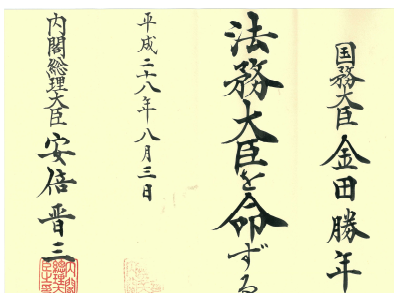 国務大臣 金田勝年
法務大臣を命ずる
平成二十八年八月三日
内閣総理大臣 安倍晋三